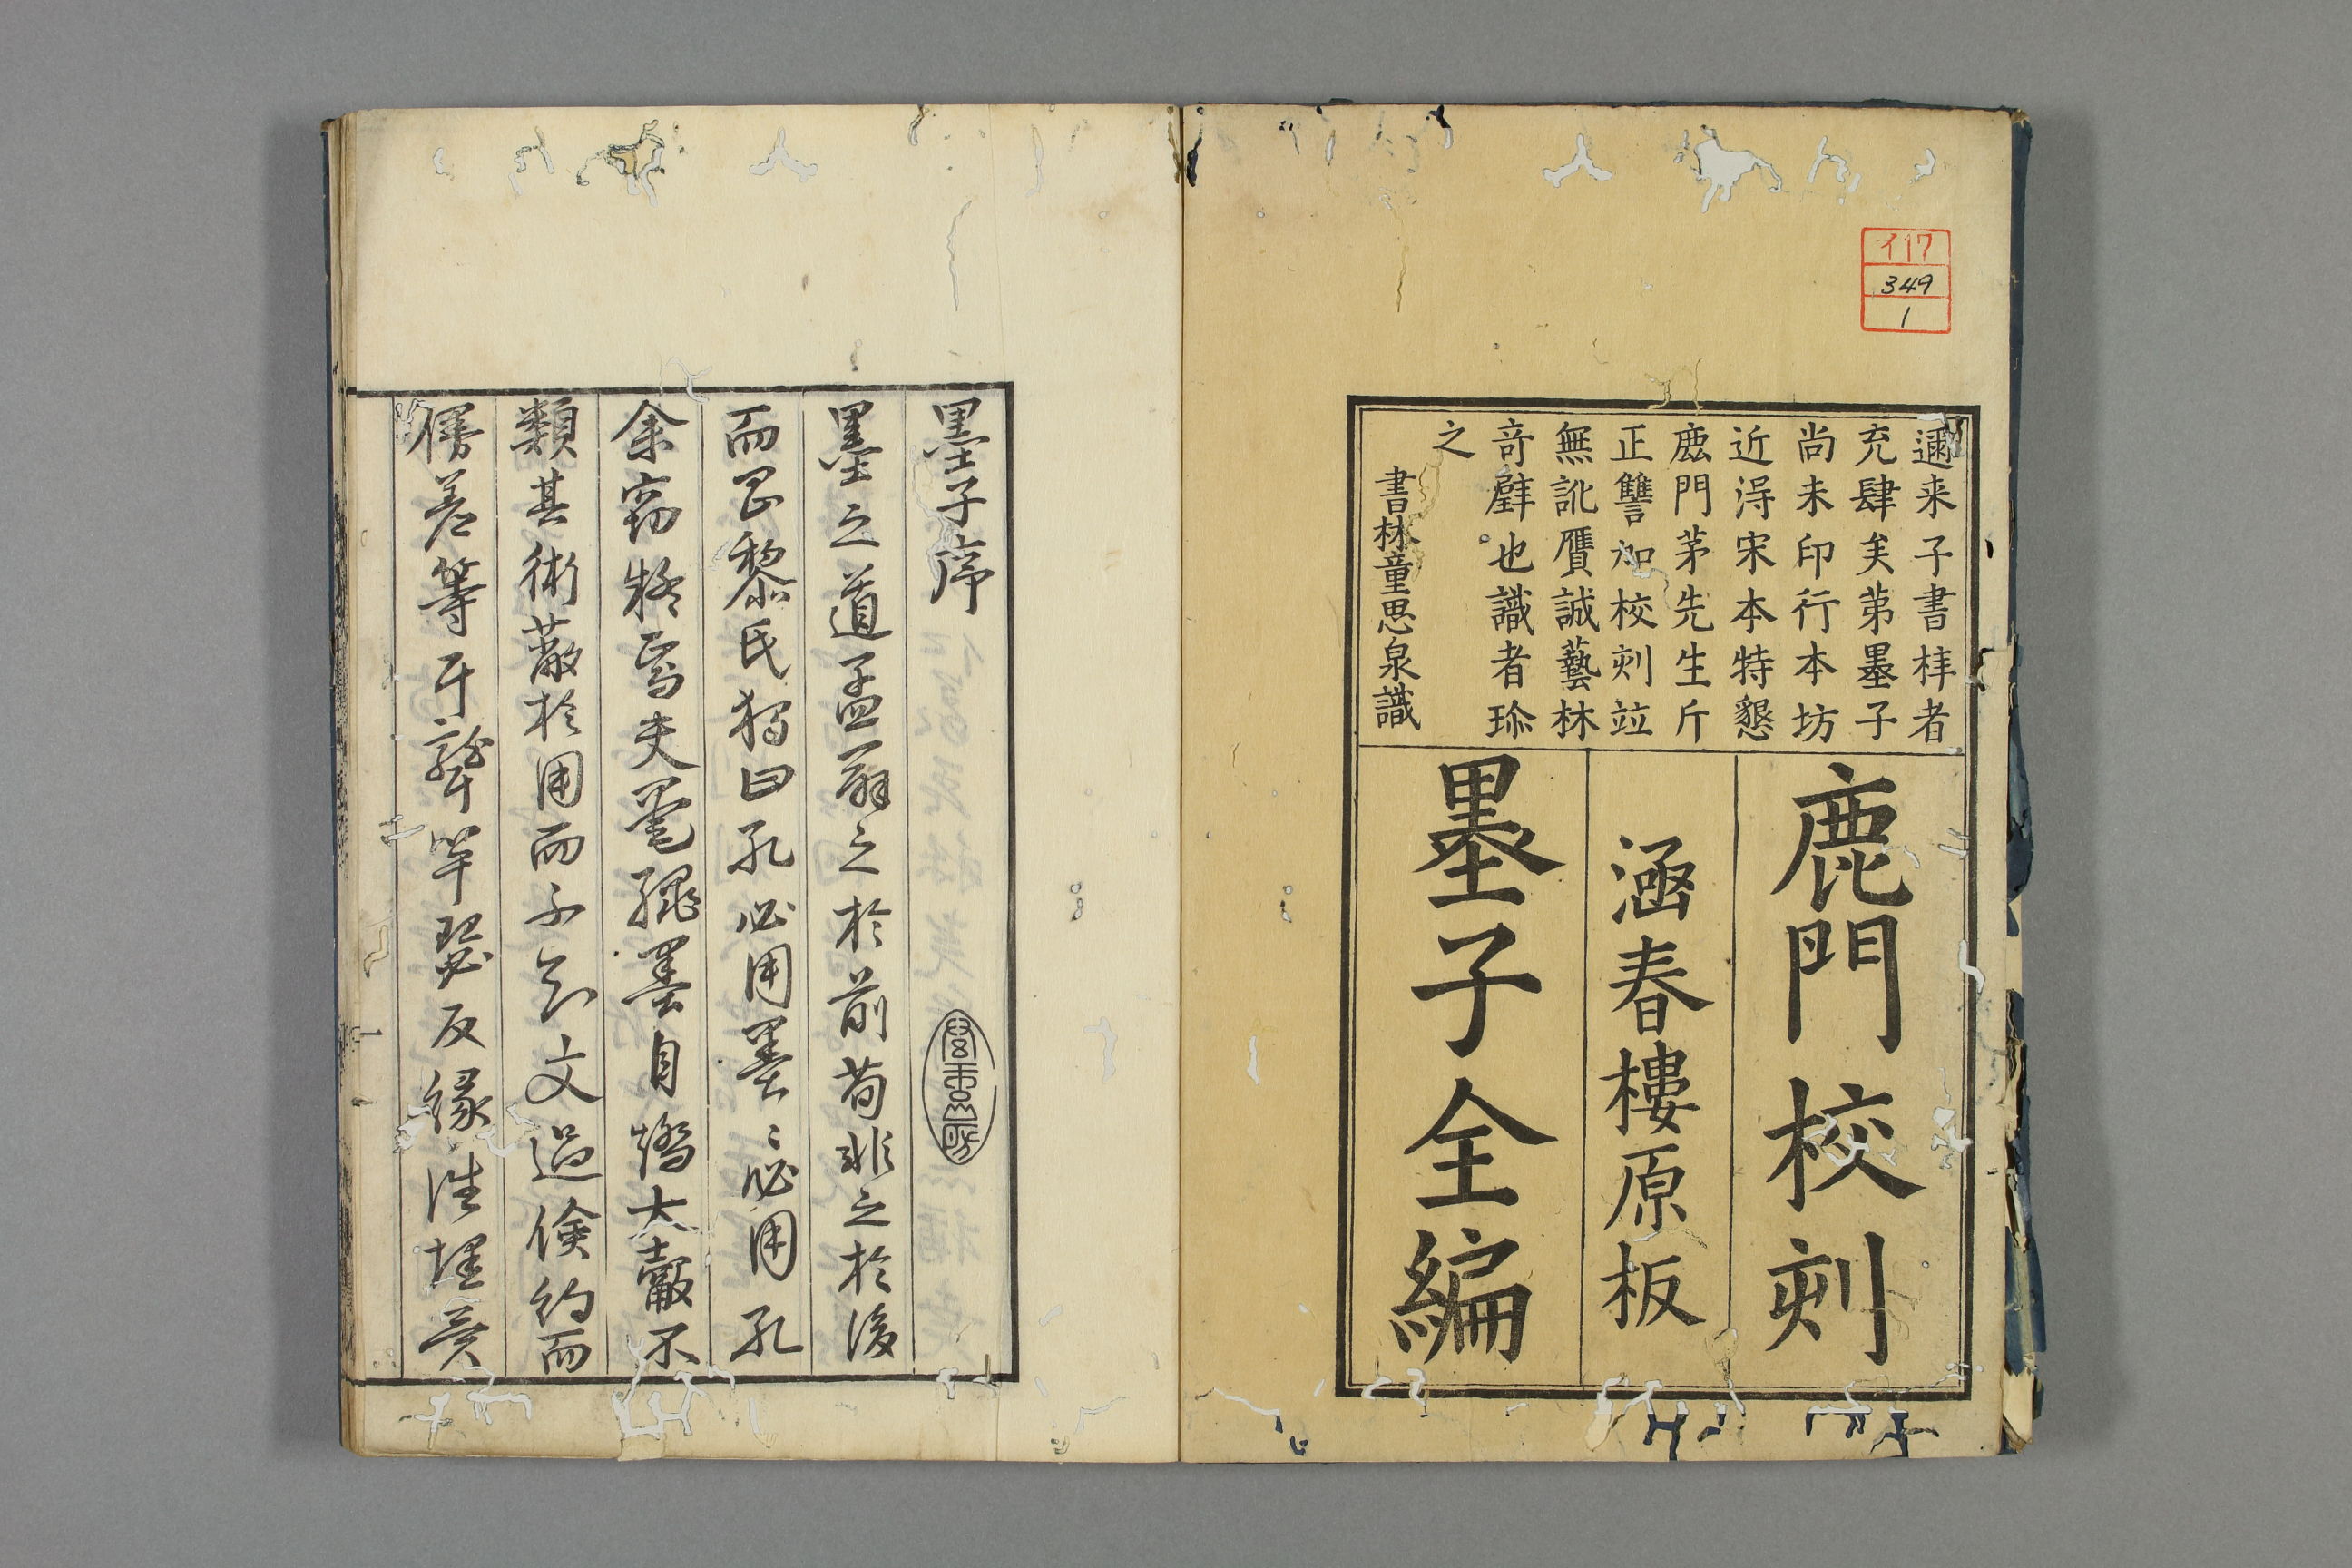 イ17
349
1
邇来子書梓者
充肆矣第墨子
尚未印行本坊
近淂宋本特懇
鹿門茅先生斤
正讐加校刻竝
無訛贋誠藝林
竒璧也識者珎
之
書林童思泉識
鹿門校刻
涵春樓原板
墨子全編
墨子序
墨之道孟辭之於前荀非之於後
而昌黎氏獨曰孔必用墨〻必用孔
余窃疑焉夫墨繩墨自矯大觳不
類其術蔽於用而不知文過儉約而
僈差等耳聾竽瑟反緣性埋葬